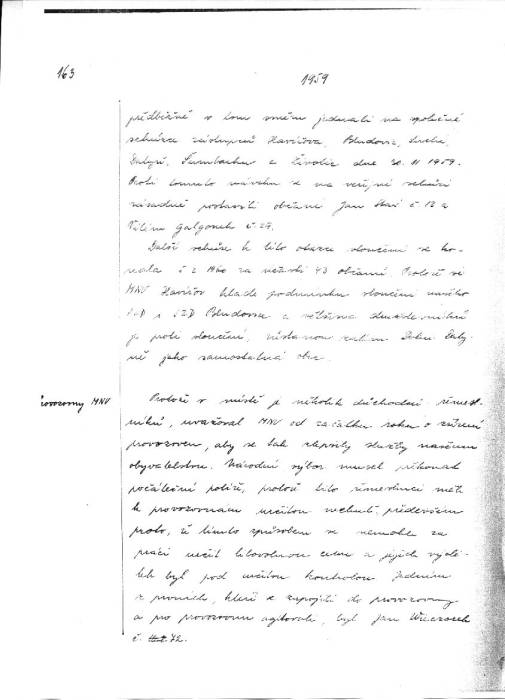 163
1959
předběžně v tom směru jednali na společné
schůzce zástupců Havířova, Bludovic, Suché,
Datyň, Šumbarku a Životic dne 20. 11 1959.
Proti tomuto návrhu se na veřejné schůzi
zásadně postavili občané Jan č 12 a
Vilém Galgonek č. 27.
Další schůze k této otázce sloučení se ko-
nala č 2 1960 za účasti 43 občanů. Protože si
MNV Havířov klade podmínku sloučení našeho
JZD s JZD Bludovice a většina družstevníků
je proti sloučení, zůstanou zatím Dolní Daty-
ně jako samostatná obec.
Provozovny MNV
Protože v místě je několik důchodců řemesl-
níků, uvažoval MNV od začátku roku o zřízení
provozoven, aby se tak zlepšily služby našemu
obyvatelstvu. Národní výbor musel překonat
počáteční potíže, protože tito řemeslníci měli
k provozovnám určitou nechuť, především
proto, že tímto způsobem se nemohla za
práci určit libovolnou cenu a jejich výděl-
ek byl pod určitou kontrolou. Jedním
z prvních, kteří se zapojili do provozovny
a pro provozovnu agitovali, byl Jan Wieczorek
č. 72.